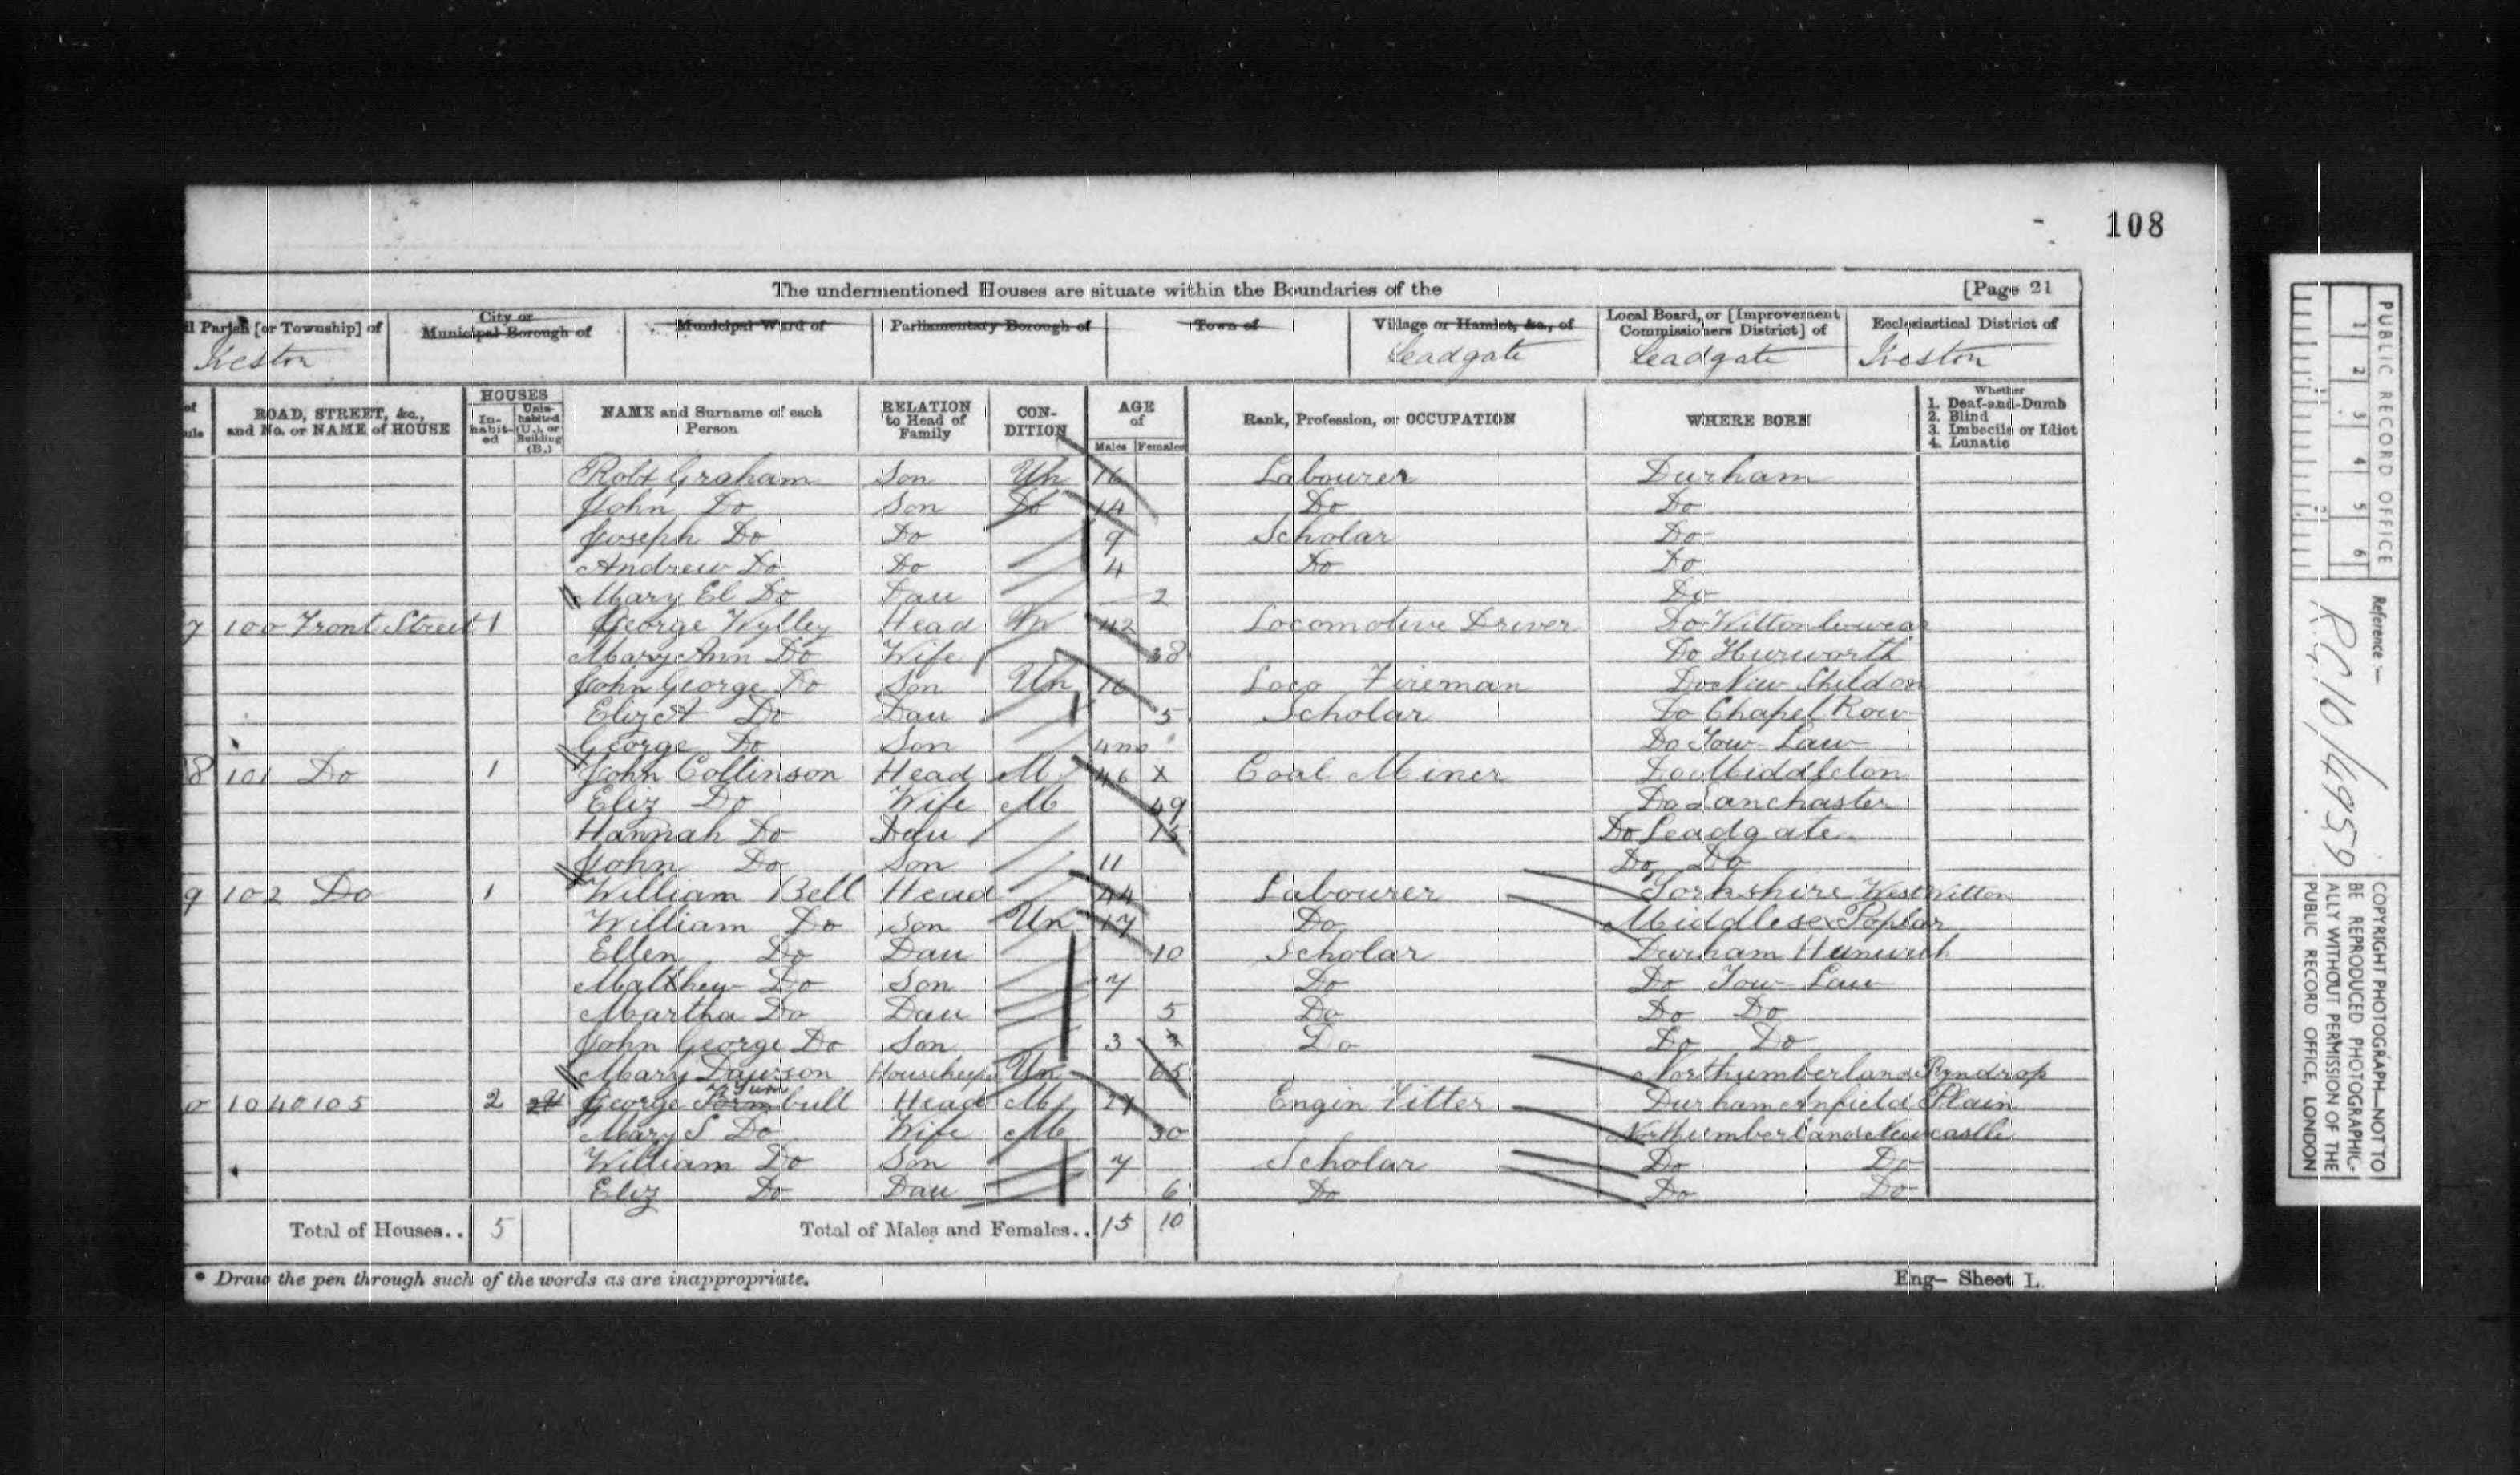 108
The undermentioned Houses are situate within the Boundaries of the [Page 21
l Parish [or Township] of City or Municipal Borough of Municipal Ward of Parliamentary Borough of Town of Village or Hamlet, &c., of Local Board, or [Improvement Commissioners District] of Ecclesiastical District of
Iveston Leadgate Leadgate Iveston
of ule ROAD, STREET, &c., and No. or NAME of HOUSE HOUSES In-habit-ed Unin-habited (U.), or Building (B.) NAME and Surname of each Person RELATION to Head of Family CON-DITION AGE of Males Females Rank, Profession, or OCCUPATION WHERE BORN Whether 1. Deaf-and-Dumb 2. Blind 3. Imbecile or Idiot 4. Lunatic
Robt Graham Son Un 16 Labourer Durham
John Do Son Do 14 Do Do
Joseph Do Do 9 Scholar Do
Andrew Do Do 4 Do Do
Mary El Do Dau 2 Do
7 100 Front Street 1 George Wylley Head M 42 Locomotive Driver Do Wittonlewear
Mary Ann Do Wife 38 Do Hurworth
John George Do Son Un 16 Loco Fireman Do New Shildon
Eliz A Do Dau 5 Scholar Do Chapel Row
George Do Son 4mo Do Tow Law
8 101 Do 1 John Collinson Head M 46 x Coal Miner Do Middleton
Eliz Do Wife M 49 Do Lanchaster
Hannah Do Dau 15 Do Leadgate
John Do Son 11 Do Do
9 102 Do 1 William Bell Head 44 Labourer Yorkshire West Witton
William Do Son Un 17 Do Middlesex Poplar
Ellen Do Dau 10 Scholar Durham Hunwich
Matthew Do Son 7 Do Do Tow Law
Martha Do Dau 5 Do Do Do
John George Do Son 3 Do Do Do
Mary Dawson Housekeeper Un 65 Northumberland
0 104 105 2 George bull Head M Engin Fitter Durham Anfield Plain
Mary S Do Wife M 30 Northumberland Newcastle
William Do Son 7 Scholar Do Do
Eliz Do Dau 6 Do Do Do
Total of Houses.. 5 Total of Males and Females.. 15 10
* Draw the pen through such of the words as are inappropriate. Eng- Sheet L.
PUBLIC RECORD OFFICE
1 2 3 4 5 6
1 2
Reference:-
R.G. 10/4959
COPYRIGHT PHOTOGRAPH—NOT TO
BE REPRODUCED PHOTOGRAPHIC-
ALLY WITHOUT PERMISSION OF THE
PUBLIC RECORD OFFICE, LONDON